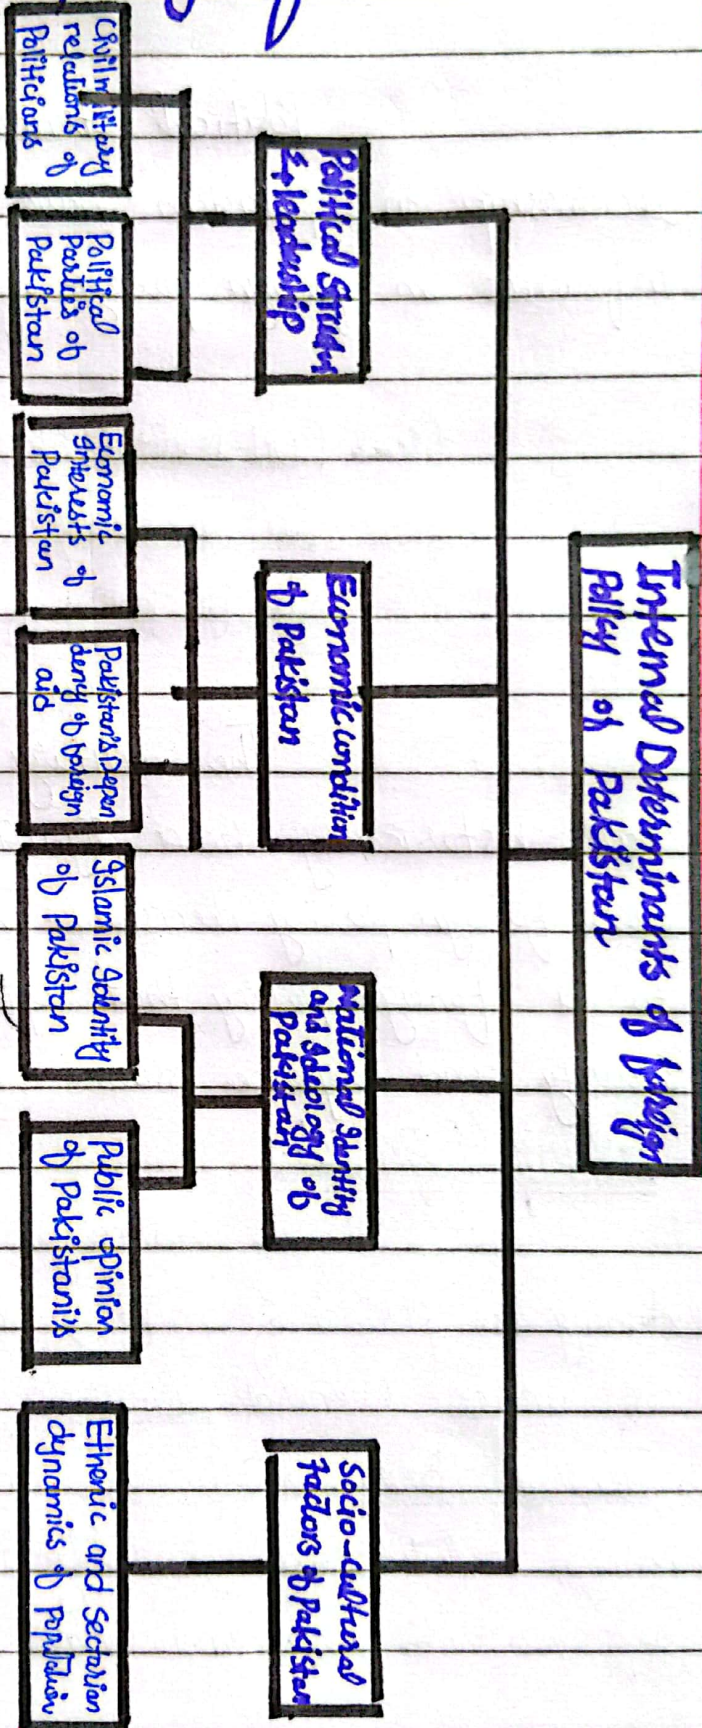 Internal Determinants of foreign
Policy of Pakistan
Political Struture
& leadership
Economic condition
of Pakistan
National Identity
and Ideology of
Pakistan
Socio-cultural
factors of Pakistan
Civil military
relations of
Politicians
Political
Parties of
Pakistan
Economic
Interests of
Pakistan
Pakistan's Depen
deny of foreign
aid
Islamic Identity
of Pakistan
Public opinion
of Pakistani's
Ethenic and Sectarian
dynamics of Population